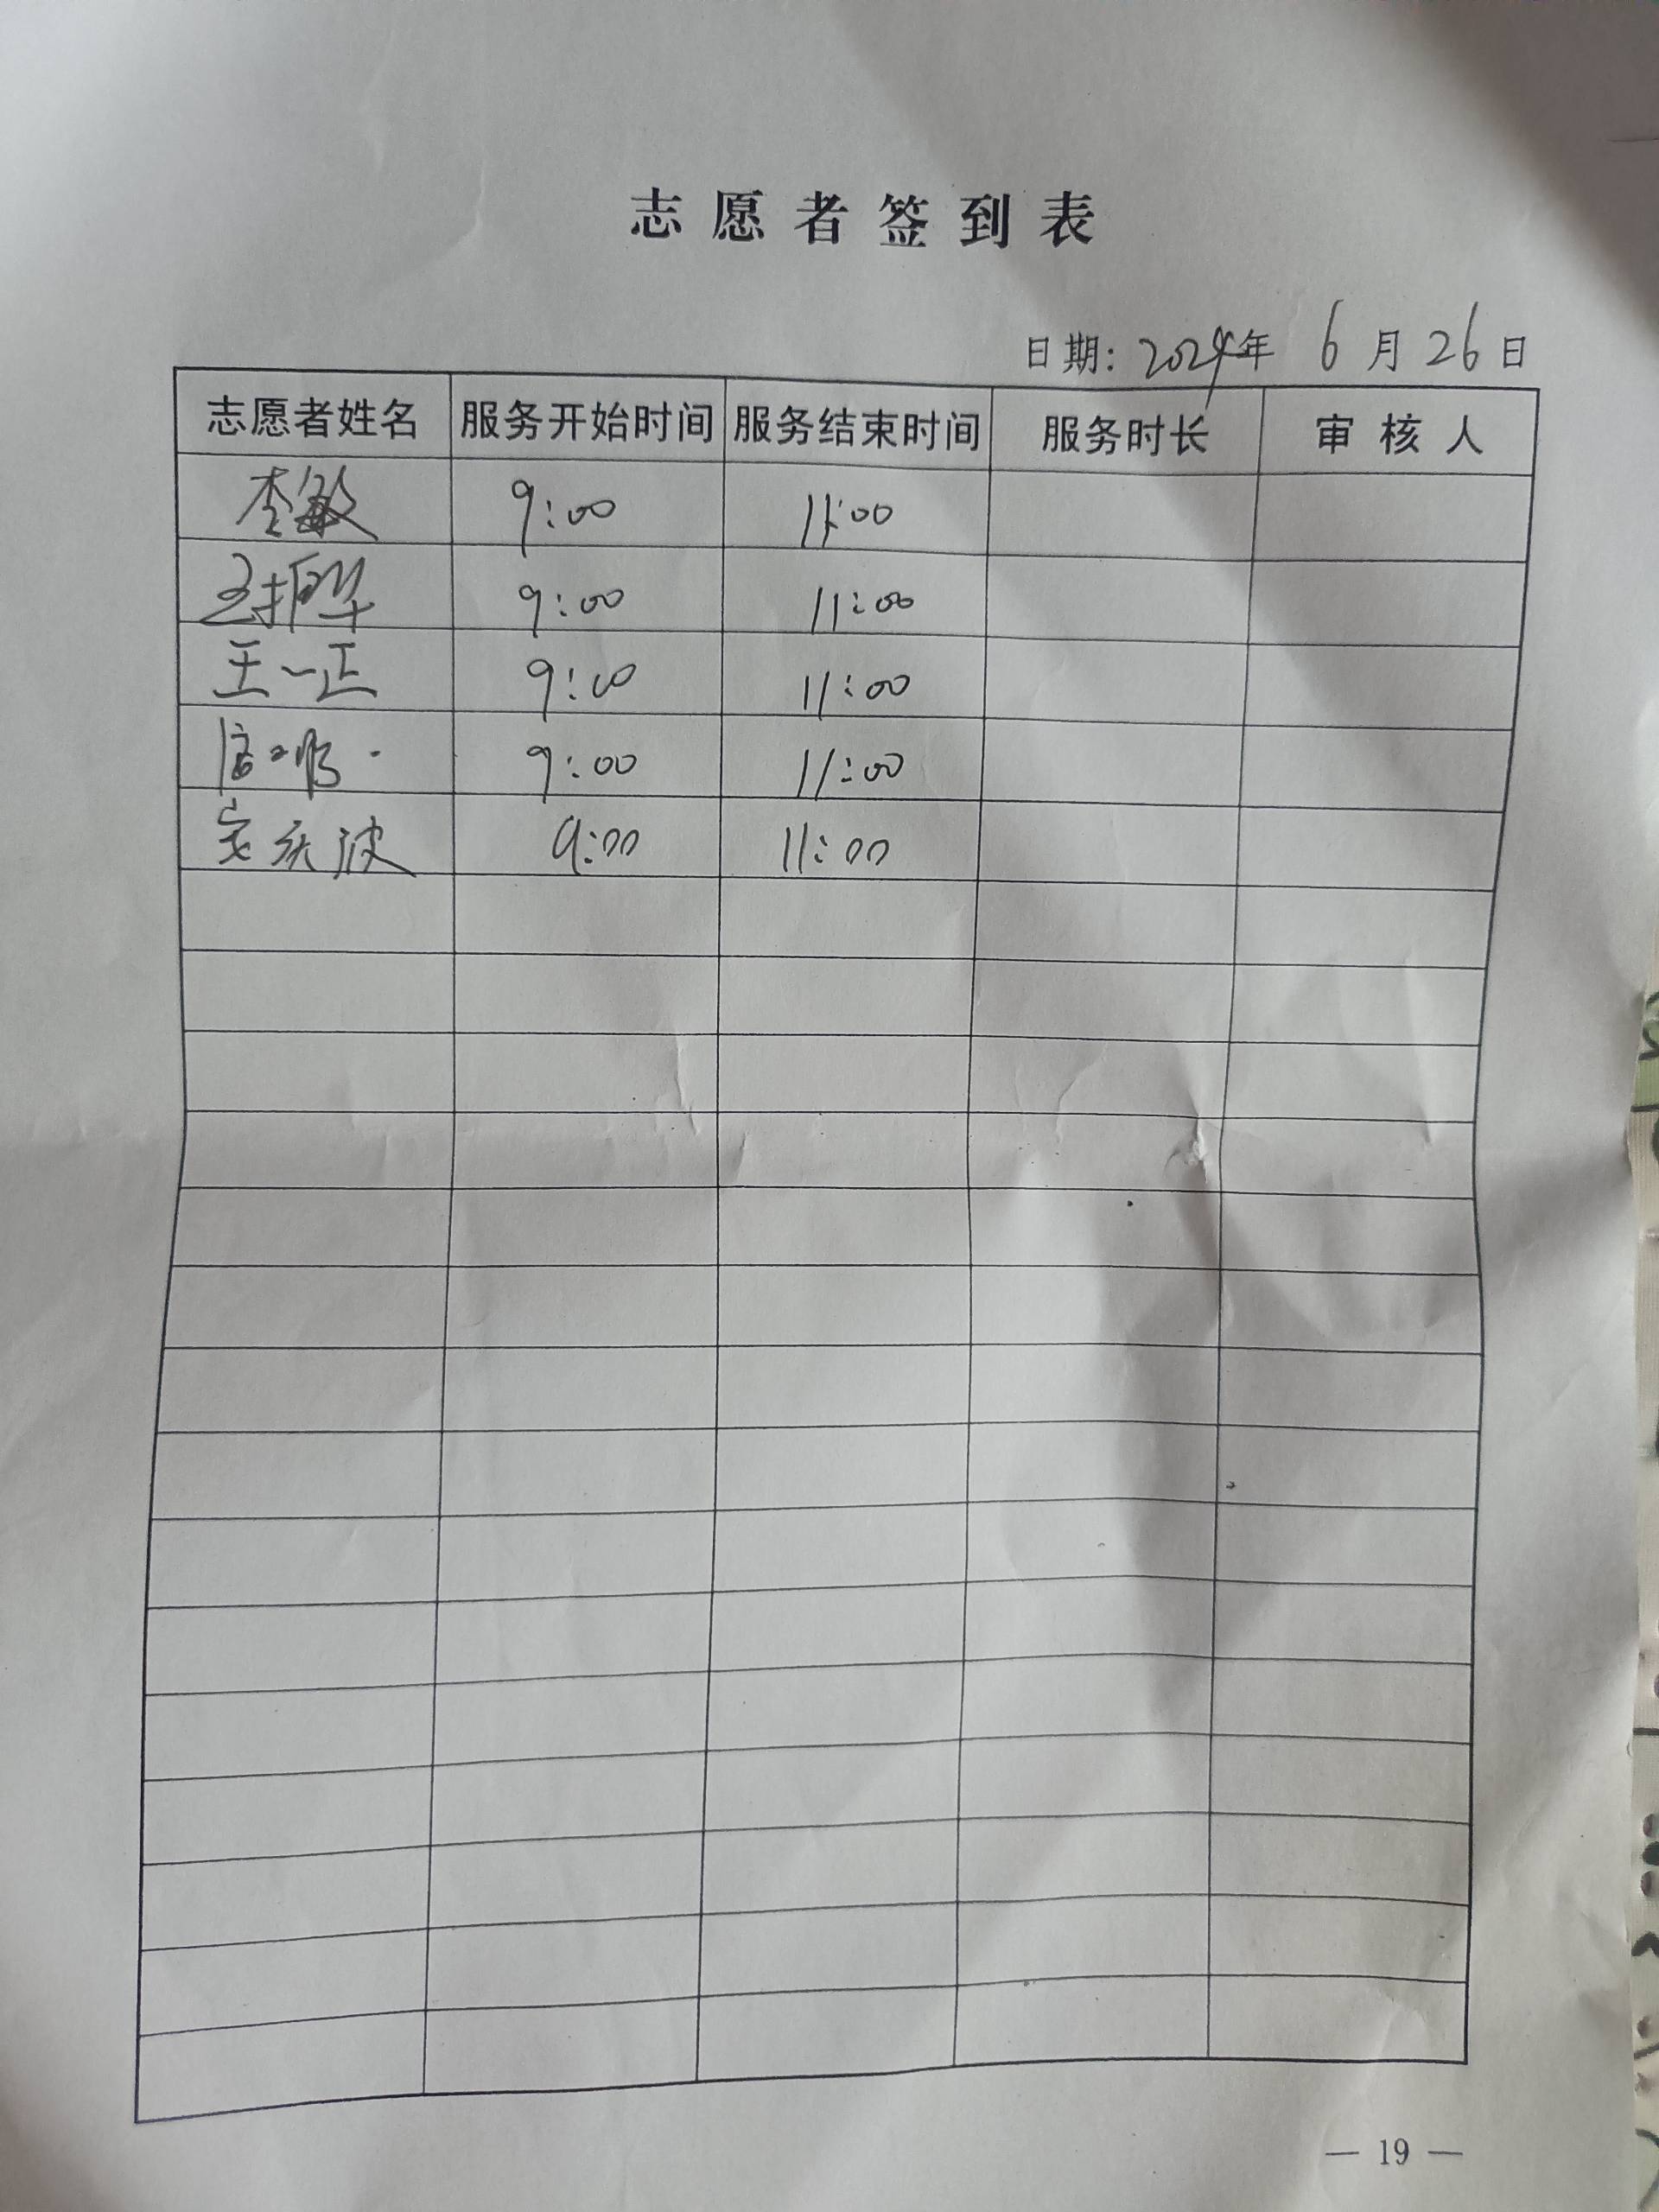 志愿者签到表
日期: 2024年 6月26日
志愿者姓名 服务开始时间 服务结束时间 服务时长 审核人
李敏 9:00 11:00
9:00 11:00
王一正 9:00 11:00
9:00 11:00
宋庆波 9:00 11:00
— 19 —